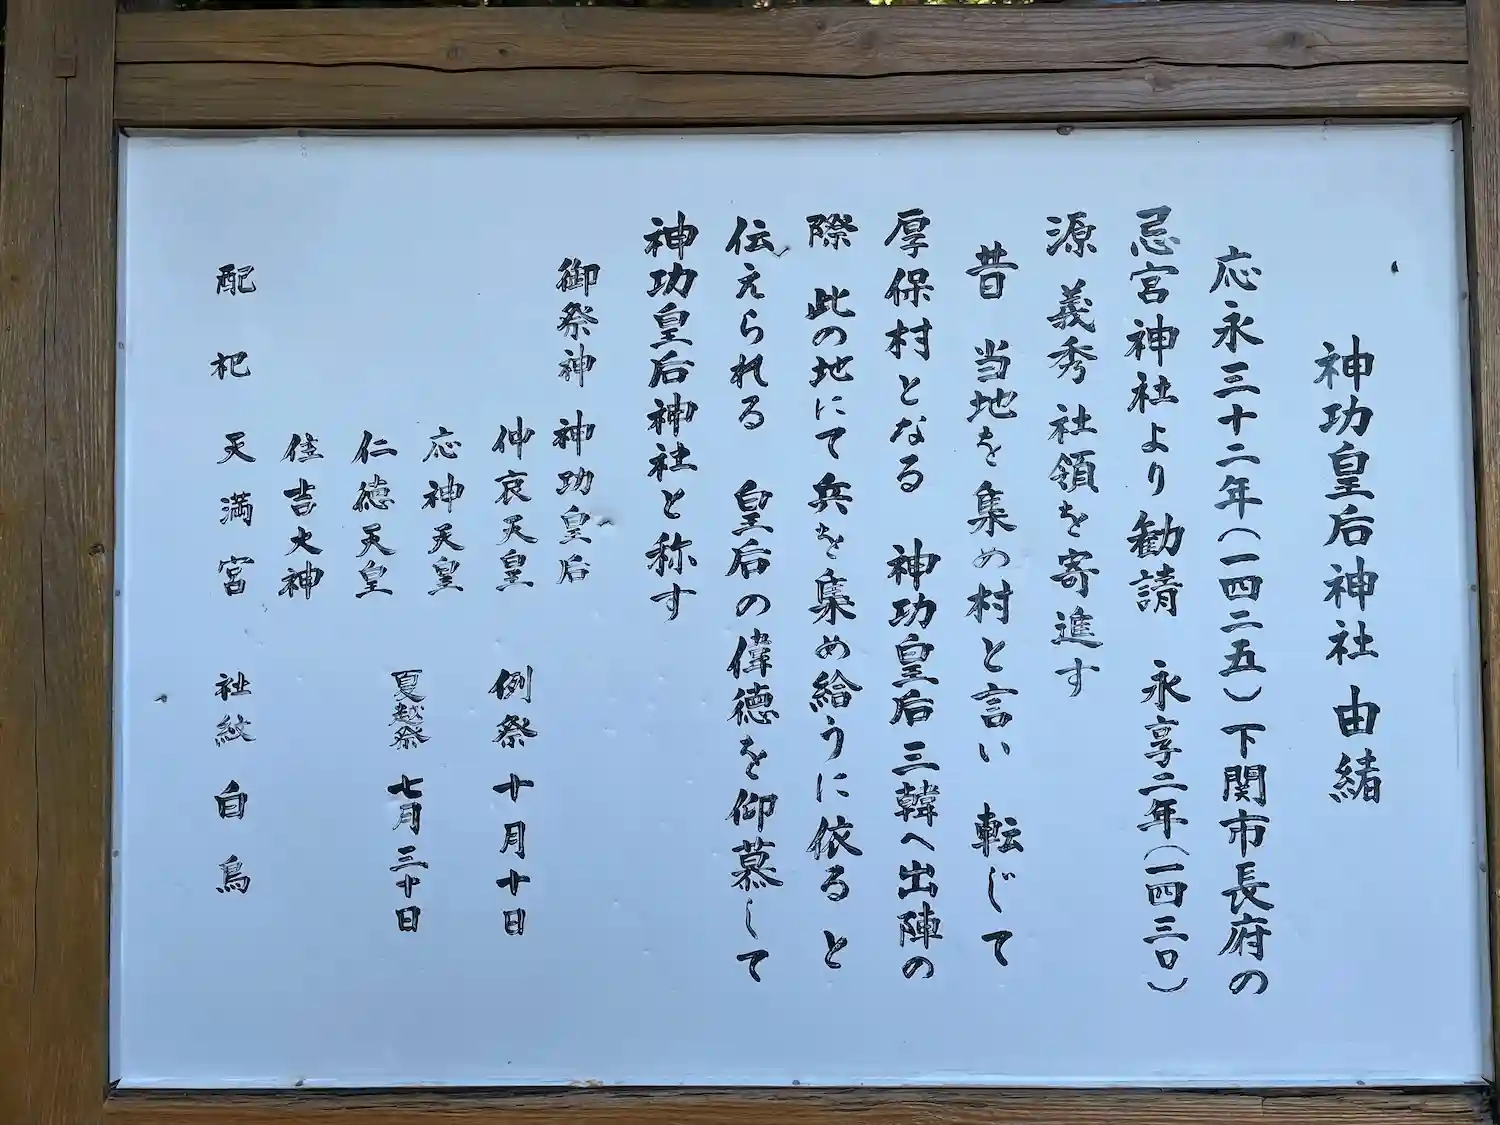 神功皇后神社由緒
応永三十二年(一四二五)下関市長府の
忌宮神社より勧請 永享二年(一四三〇)
源義秀社領を寄進す
昔 当地を集め村と言い 転じて
厚保村となる 神功皇后三韓へ出陣の
際 此の地にて兵を集め給うに依ると
伝えられる 皇后の偉徳を仰慕して
神功皇后神社と称す
御祭神 神功皇后
仲哀天皇 例祭 十月十日
応神天皇 夏越祭 七月三十日
仁徳天皇
住吉大神
配祀 天満宮 社紋 白鳥